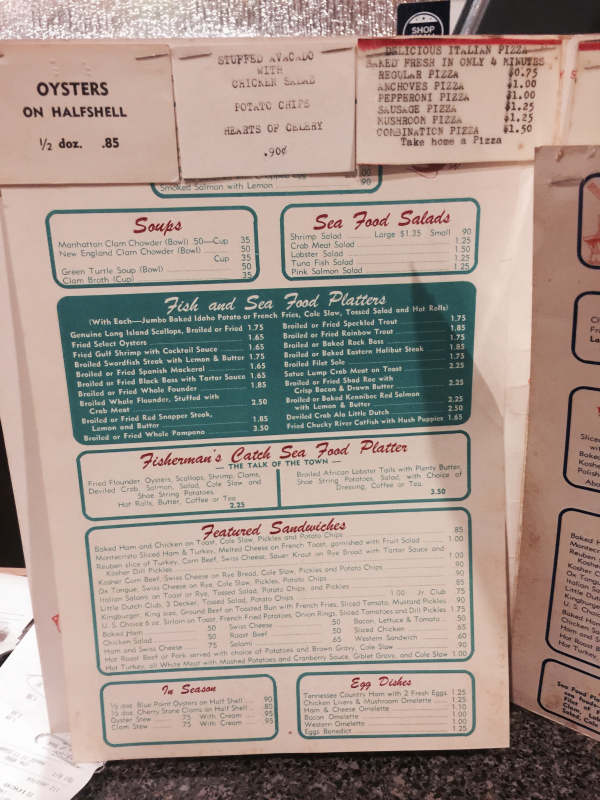 SHOP
OYSTERS
ON HALFSHELL
½ doz. .85
STUFFED AVACADO
WITH
CHICKEN SALAD
POTATO CHIPS
HEARTS OF CELERY
.90¢
DELICIOUS ITALIAN PIZZA
BAKED FRESH IN ONLY 4 MINUTES
REGULAR PIZZA $0.75
ANCHOVES PIZZA $1.00
PEPPERONI PIZZA $1.00
SAUSAGE PIZZA $1.25
MUSHROOM PIZZA $1.25
COMBINATION PIZZA $1.50
Take home a Pizza
Smoked Salmon with Lemon 90
Soups
Manhattan Clam Chowder (Bowl) 50—Cup 35
New England Clam Chowder (Bowl) 50
Cup 35
Green Turtle Soup (Bowl) 50
Clam Broth (Cup) 35
Sea Food Salads
Shrimp Salad Large $1.35 Small .90
Crab Meat Salad 1.25
Lobster Salad 1.50
Tuna Fish Salad 1.25
Pink Salmon Salad 1.25
Fish and Sea Food Platters
(With Each—Jumbo Baked Idaho Potato or French Fries, Cole Slaw, Tossed Salad and Hot Rolls)
Genuine Long Island Scallops, Broiled or Fried 1.75
Fried Select Oysters 1.65
Fried Gulf Shrimp with Cocktail Sauce 1.65
Broiled Swordfish Steak with Lemon & Butter 1.75
Broiled or Fried Spanish Mackeral 1.65
Broiled or Fried Black Bass with Tartar Sauce 1.65
Broiled or Fried Whole Founder 1.85
Broiled Whole Flounder, Stuffed with
Crab Meat 2.50
Broiled or Fried Red Snapper Steak,
Lemon and Butter 1.85
Broiled or Fried Whole Pompano 3.50
Broiled or Fried Speckled Trout 1.75
Broiled or Fried Rainbow Trout 1.85
Broiled or Baked Rock Bass 1.75
Broiled or Baked Eastern Halibut Steak 1.85
Broiled Filet Sole 1.75
Satue Lump Crab Meat on Toast 2.25
Broiled or Fried Shad Roe with
Crisp Bacon & Drawn Butter 2.25
Broiled or Baked Kennibec Red Salmon
with Lemon & Butter 2.25
Deviled Crab Ala Little Dutch 2.50
Fried Chucky River Catfish with Hush Puppies 1.65
Fisherman's Catch Sea Food Platter
— THE TALK OF THE TOWN —
Fried Flounder, Oysters, Scallops, Shrimp, Clams,
Deviled Crab, Salmon, Salad, Cole Slaw and
Shoe String Potatoes
Hot Rolls, Butter, Coffee or Tea
2.25
Broiled African Lobster Tails with Plenty Butter,
Shoe String Potatoes, Salad, with Choice of
Dressing, Coffee or Tea
3.50
Featured Sandwiches
Baked Ham and Chicken on Toast, Cole Slaw, Pickles and Potato Chips 85
Montecristo Sliced Ham & Turkey, Melted Cheese on French Toast, garnished with Fruit Salad 1.00
Reuben slice of Turkey, Corn Beef, Swiss Cheese, Sauer Kraut on Rye Bread with Tartar Sauce and
Kosher Dill Pickles 1.00
Kosher Corn Beef, Swiss Cheese on Rye Bread, Cole Slaw, Pickles and Potato Chips 90
Ox Tongue, Swiss Cheese on Rye, Cole Slaw, Pickles, Potato Chips 90
Italian Salami on Toast or Rye, Tossed Salad, Potato Chips, and Pickles 85
Little Dutch Club, 3 Decker, Tossed Salad, Potato Chips 1.00 Jr. Club .75
Kingburger, King size, Ground Beef on Toasted Bun with French Fries, Sliced Tomato, Mustard Pickles 90
U. S. Choice 6 oz. Sirloin on Toast, French Fried Potatoes, Onion Rings, Sliced Tomatoes and Dill Pickles 1.75
Baked Ham 50 Swiss Cheese 50 Bacon, Lettuce & Tomato .50
Chicken Salad 50 Roast Beef 50 Sliced Chicken .65
Ham and Swiss Cheese 75 Salami .65 Western Sandwich .60
Hot Roast Beef or Pork served with choice of Potatoes and Brown Gravy, Cole Slaw 90
Hot Turkey, all White Meat with Mashed Potatoes and Cranberry Sauce, Giblet Gravy, and Cole Slaw 1.00
In Season
½ doz. Blue Point Oysters on Half Shell .90
½ doz. Cherry Stone Clams on Half Shell .80
Oyster Stew .75 With Cream .95
Clam Stew .75 With Cream .95
Egg Dishes
Tennessee Country Ham with 2 Fresh Eggs 1.25
Chicken Livers & Mushroom Omelette 1.25
Ham & Cheese Omelette 1.10
Bacon Omelette 1.00
Western Omelette 1.00
Eggs Benedict 1.25